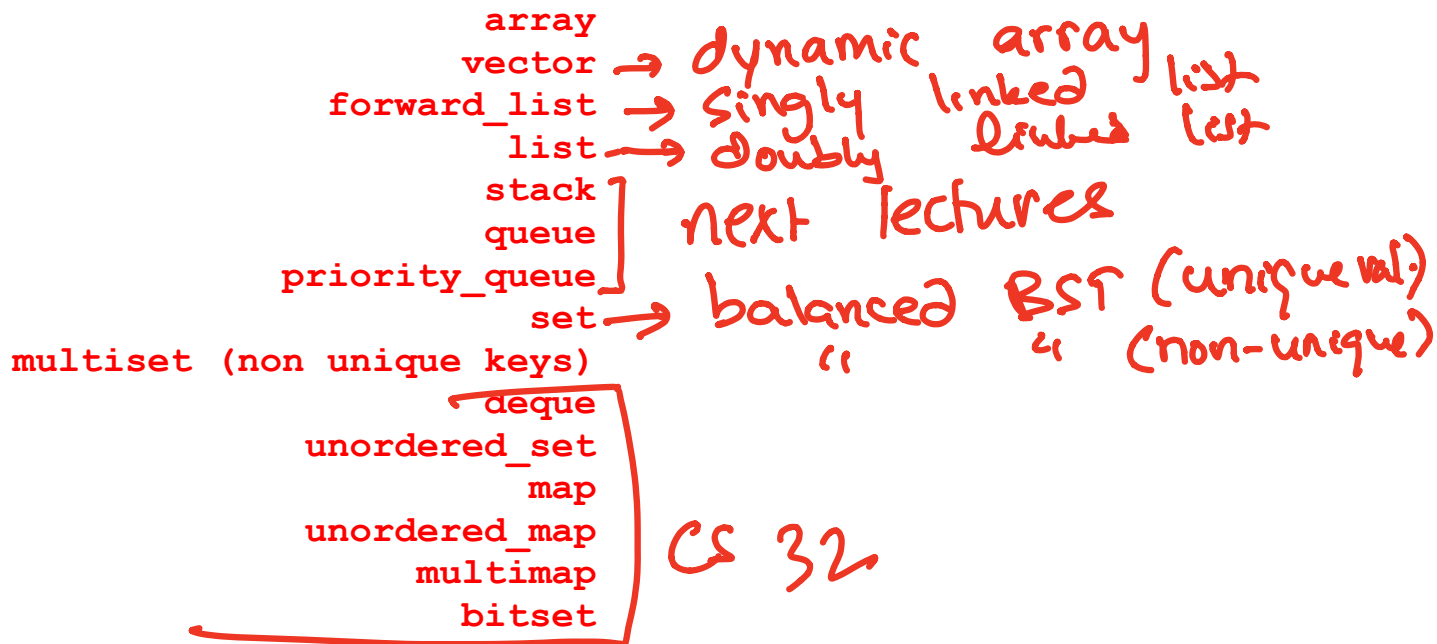 array
vector → dynamic array
forward_list → singly linked list
list → doubly linked list
stack
queue
next lectures
priority_queue
set → balanced BST (unique val.)
multiset (non unique keys) " " (non-unique)
deque
unordered_set
map
unordered_map
CS 32
multimap
bitset